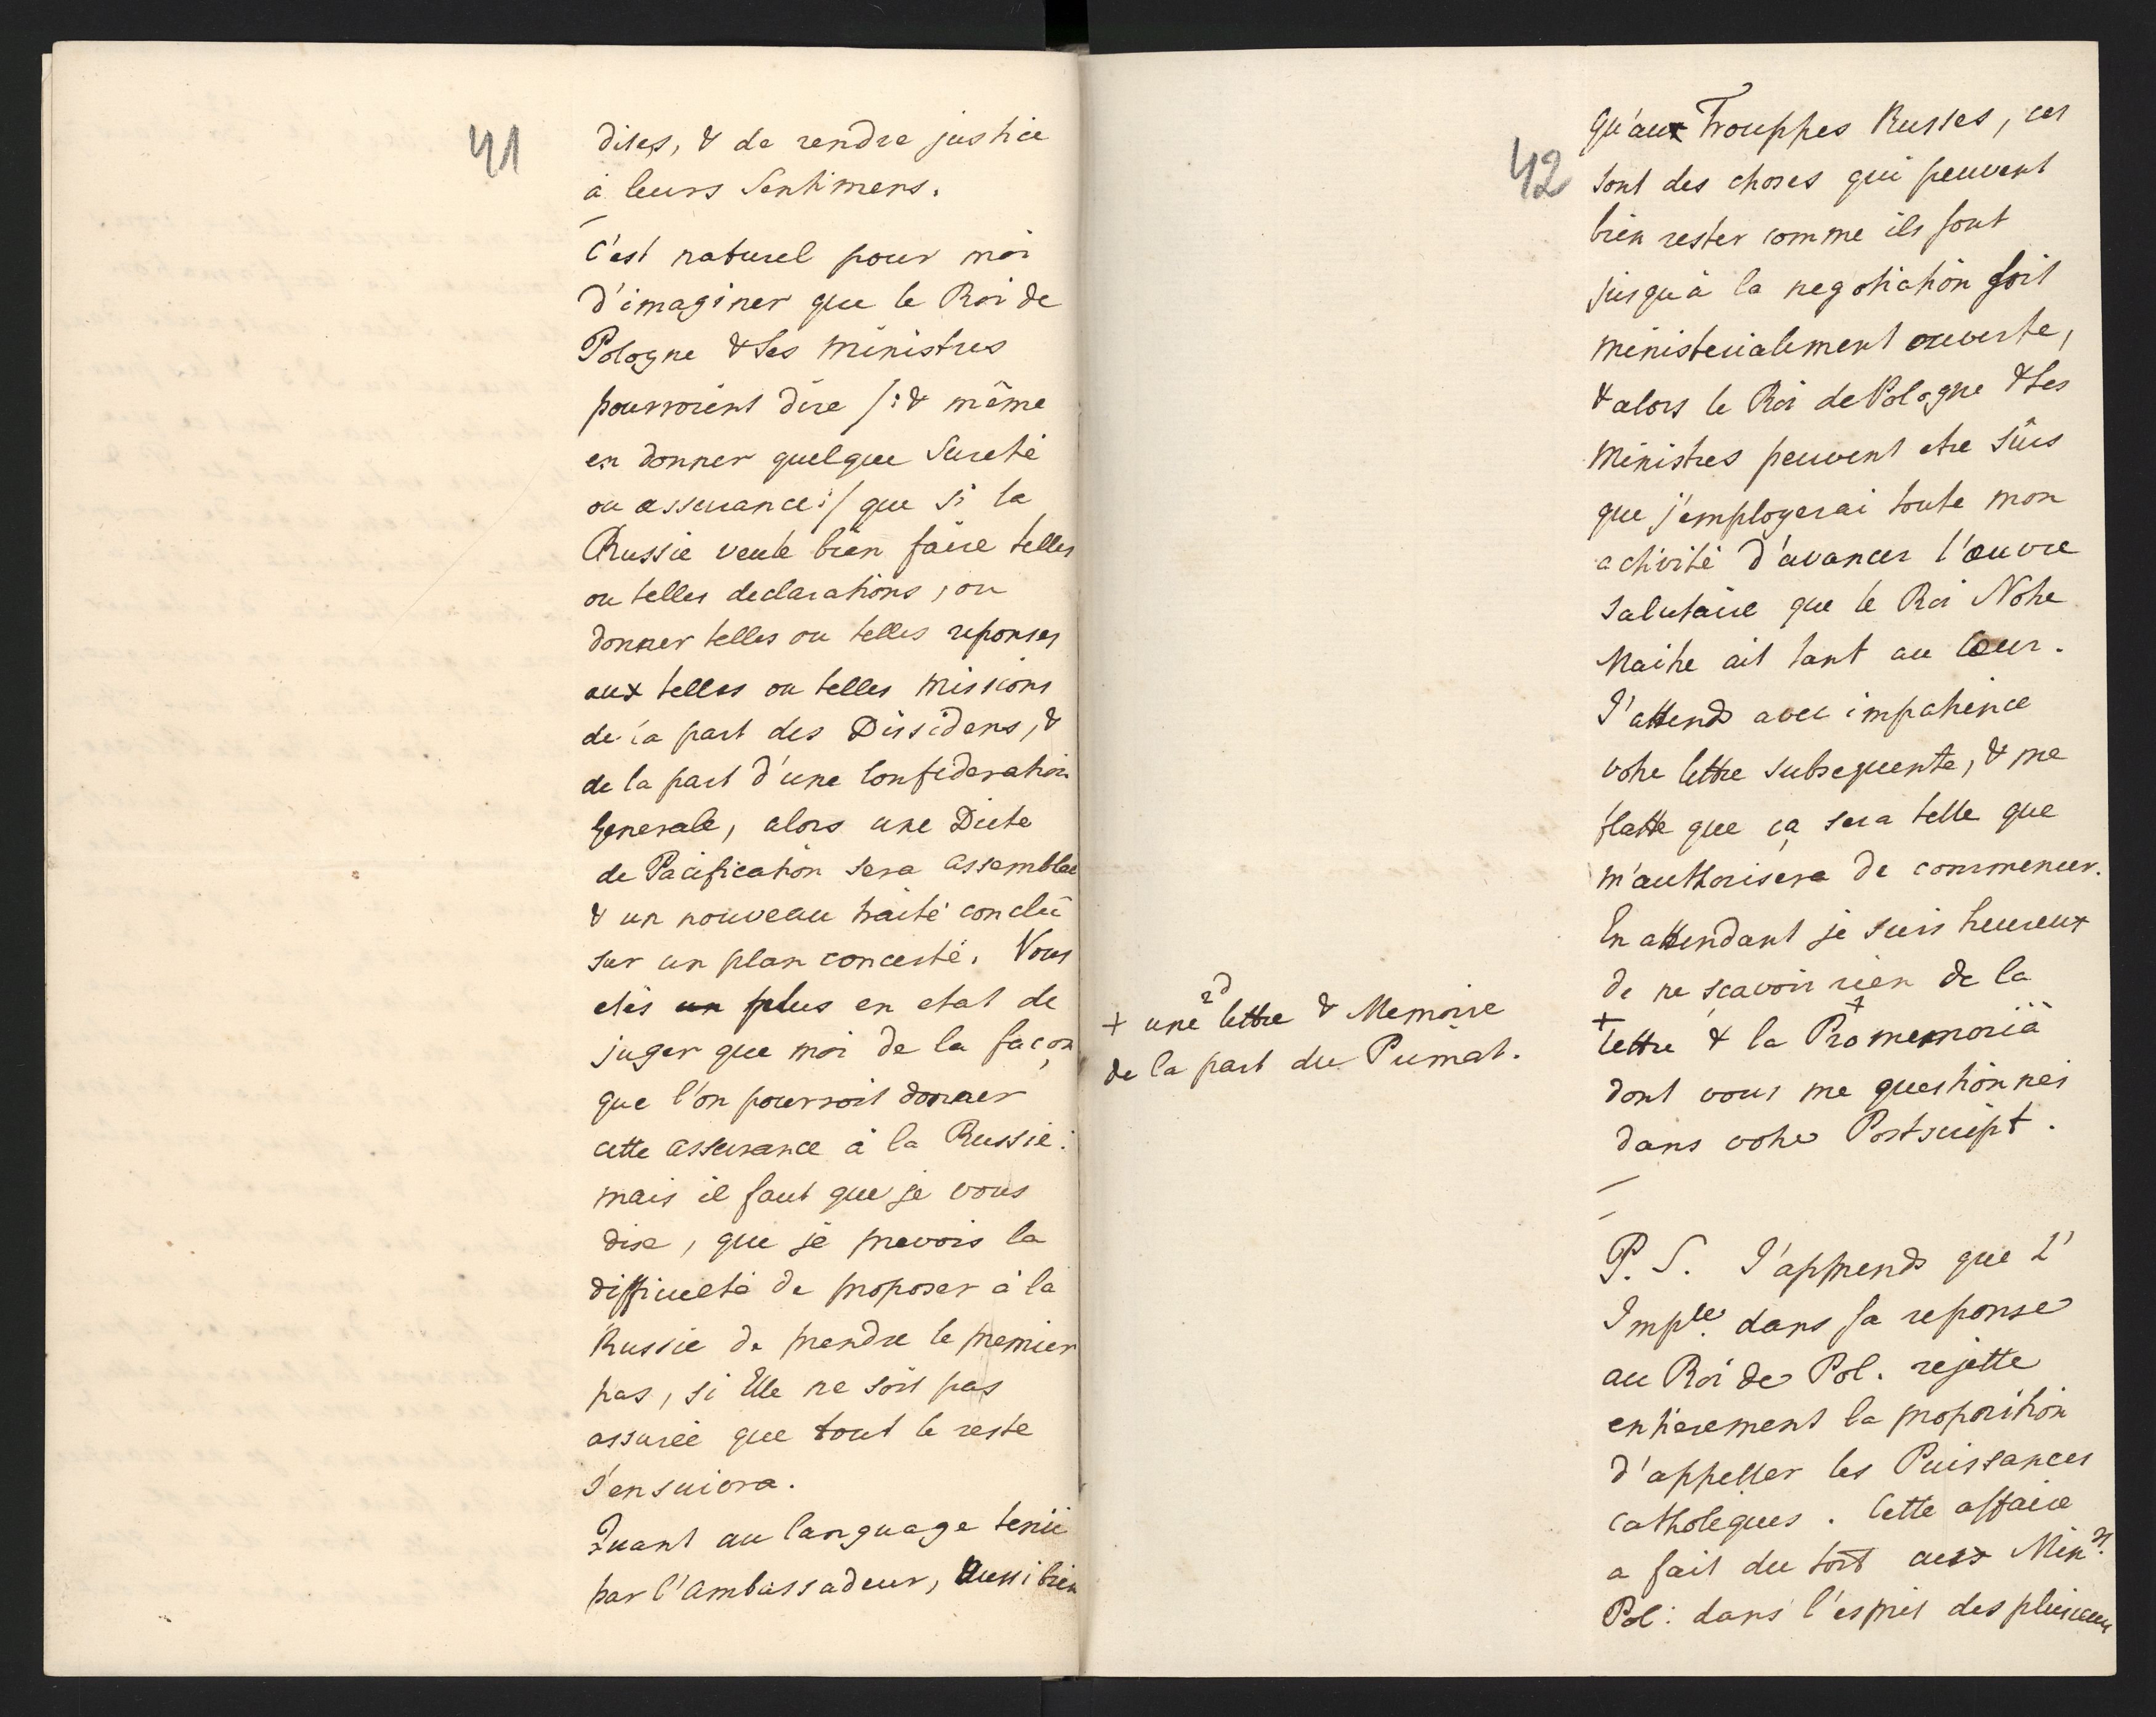 41
dites, & de rendre justice
à leurs Sentimens.
C'est naturel pour moi
d'imaginer que le Roi de
Pologne & Ses Ministres
pourroient dire /: & même
en donner quelque Sureté
ou assurance :/ que si la
Russie veule bien faire telles
ou telles declarations, ou
donner telles ou telles reponses
aux telles ou telles Missions
de la part des Dissidens, &
de la part d'une Confideration
Generale, alors une Diete
de Pacification sera assemblee
& un nouveau traité conclu
sur un plan concerté. Vous
etès un plus en etat de
juger que moi de la façon
que l'on pourroit donner
cette assurance à la Russie:
mais il faut que je vous
dise, que je prevois la
difficulté de proposer à la
Russie de prendre le premier
pas, si Elle ne soit pas
assurée que tout le reste
s'ensuivra.
Quant au language tenu
par l'ambassadeur, Aussi bien
42
qu'aux Trouppes Russes, ces
sont des choses qui peuvent
bien rester comme ils sont
jusqu'à la negotiation soit
ministerialement ouverte,
& alors le Roi de Pologne & Ses
Ministres peuvent etre Sûrs
que j'employerai toute mon
activité d'avancer l'ouvre
salutaire que le Roi Notre
Maitre ait tant au Cœur.
J'attends avec impatience
votre lettre subsequente, & me
flatte que ça sera telle que
m'authorisera de commencer.
En attendant je suis heureux
de ne sçavoir rien de la
+ lettre & la + Promemoria
dont vous me questionnés
dans votre Postscript.
+ une 2d lettre & Memoire
de la part du Primat.
P. S. J'apprends que L'
Imple. dans sa reponse
au Roi de Pol. rejette
entierement la proposition
d'appeller les Puissances
catholiques. Cette affaire
a fait du tort aux Min:
Pol: dans l'esprit des plusieurs